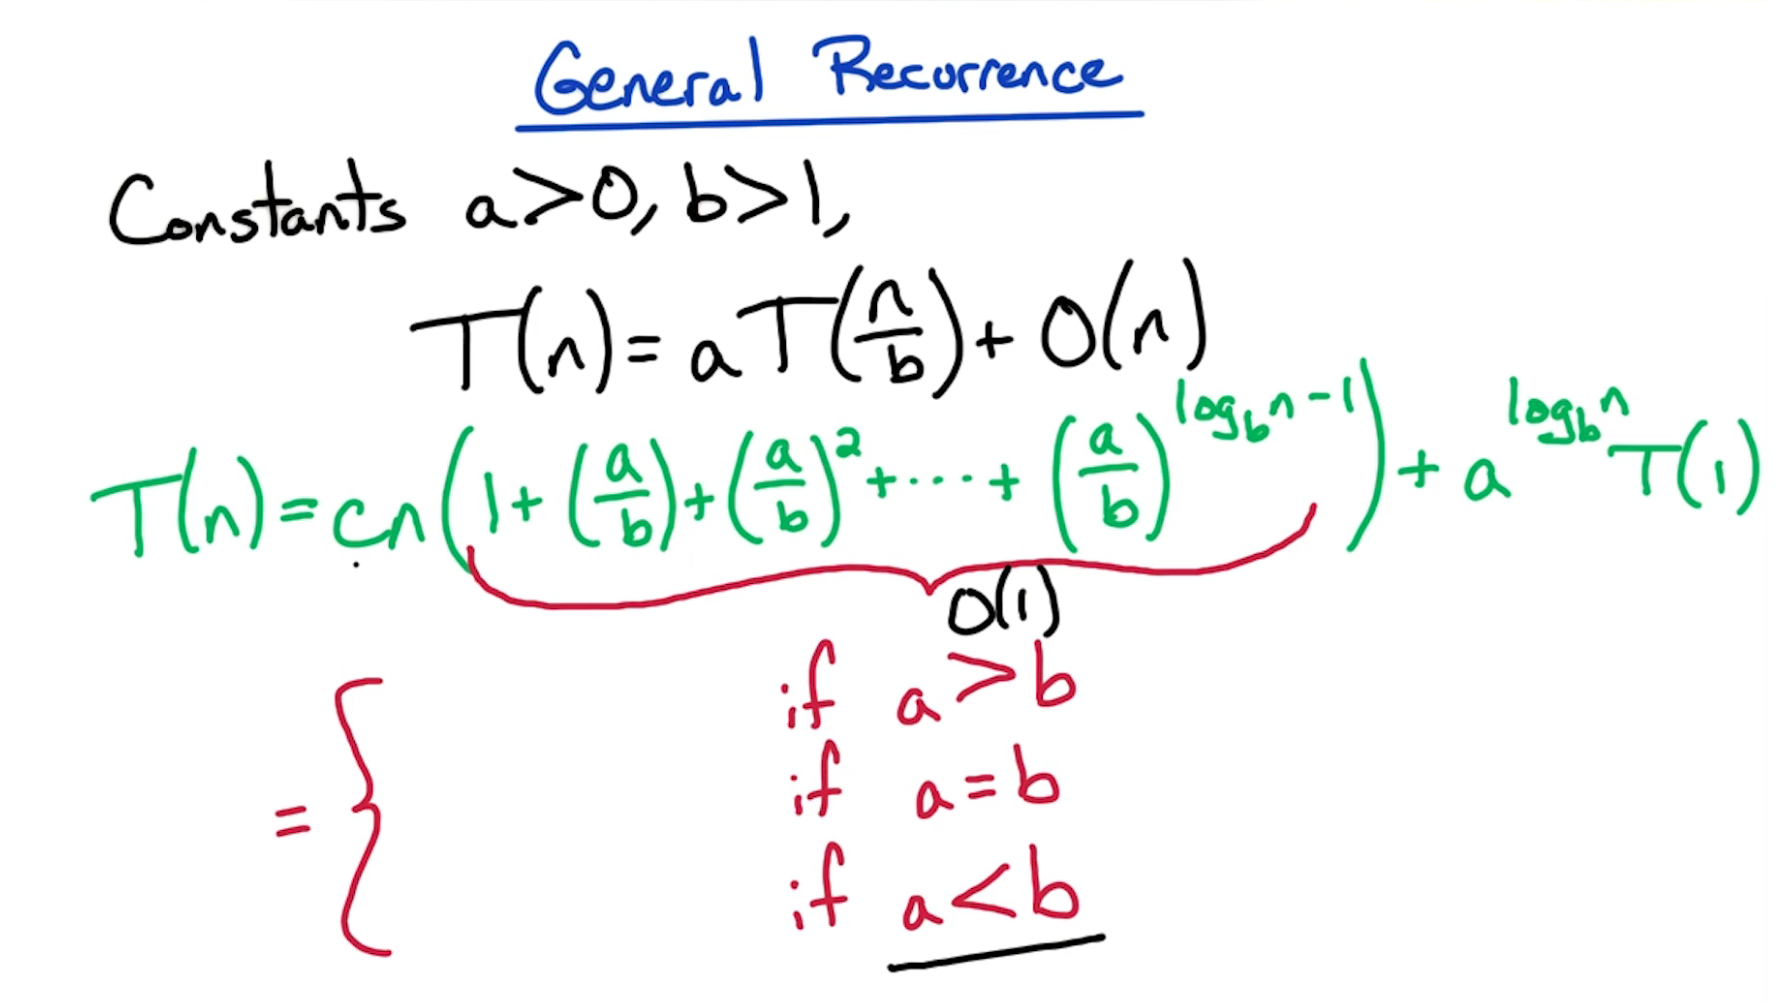 General Recurrence
Constants a>0, b>1,
T(n) = aT(n/b) + O(n)
T(n) = cn(1 + (a/b) + (a/b)^2 + ··· + (a/b)^(log_b n - 1)) + a^(log_b n) T(1)
O(1)
= { if a > b
if a = b
if a < b